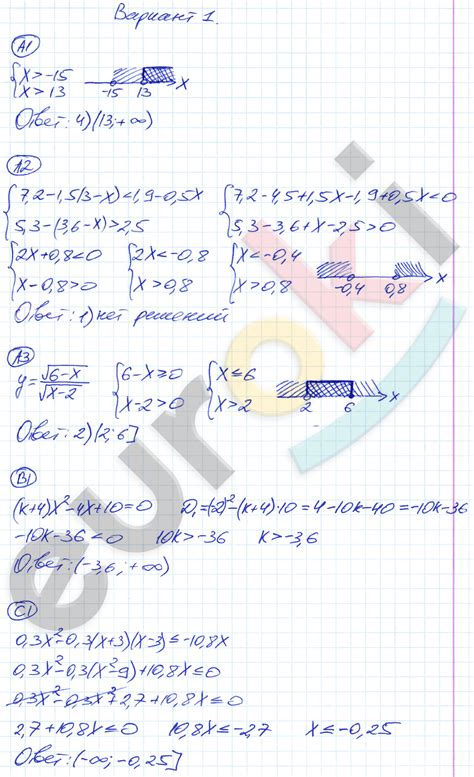 Вариант 1.
А1
{x>-15
{x>13
-15 13 x
Ответ: 4) (13; +∞)
А2
{7,2-1,5(3-x)<1,9-0,5x {7,2-4,5+1,5x-1,9+0,5x<0
{5,3-(3,6-x)>2,5 {5,3-3,6+x-2,5>0
{2x+0,8<0 {2x<-0,8 {x<-0,4
{x-0,8>0 {x>0,8 {x>0,8 -0,4 0,8 x
Ответ: 1) нет решений
А3
y=√6-x/√x-2 {6-x≥0 {x≤6
{x-2>0 {x>2 2 6 x
Ответ: 2) (2; 6]
В1
(k+4)x²-4x+10=0 D₁=(-2)²-(k+4)·10=4-10k-40=-10k-36
-10k-36<0 10k>-36 k>-3,6
Ответ: (-3,6; +∞)
С1
0,3x²-0,3(x+3)(x-3)≤-10,8x
0,3x²-0,3(x²-9)+10,8x≤0
0,3x²-0,3x²+2,7+10,8x≤0
2,7+10,8x≤0 10,8x≤-2,7 x≤-0,25
Ответ: (-∞; -0,25]
euroki